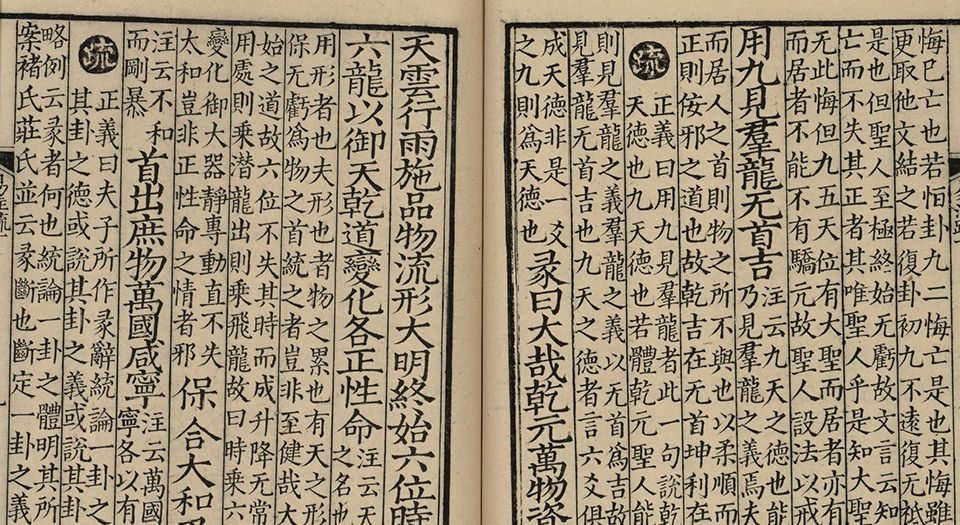 悔巳亡也若恒卦九二悔亡是也其悔雖
更取他文結之若復卦初九不遠復无祇
是也但聖人至極終始无虧故文言云知
亡而不失其正者其唯聖人乎是知大聖
无此悔但九五天位有大聖而居者亦有
而居者不能不有驕亢故聖人設法以戒
用九見羣龍无首吉
注云九天之德也能
乃見羣龍之義焉夫
而居人之首則物之所不與也以柔順而
正則佞邪之道也故乾吉在无首坤利在
疏
正義曰用九見羣龍者此一句說乾
天德也九天德也若體乾元聖人能
則見羣龍之義羣龍之義以无首爲吉故
見羣龍无首吉也九天之德者言六爻俱
成天德非是一爻
之九則爲天德也
彖曰大哉乾元萬物資
天雲行雨施品物流形大明終始六位時
六龍以御天乾道變化各正性命
注云天
之名也
用形者也夫形也者物之累也有天之形
保无虧爲物之首統之者豈非至健哉大
始之道故六位不失其時而成升降无常
用處則乘潛龍出則乘飛龍故曰時乘六
變化御大器靜專動直不失
太和豈非正性命之情者邪
保合大和乃
注云不和
而剛暴
首出庶物萬國咸寧
注云萬國
寧各以有
疏
正義曰夫子所作彖辭統論一卦之
其卦之德或說其卦之義或說其卦
略例云彖者何也統論一卦之體明其所
案褚氏莊氏並云彖斷也斷定一卦之義